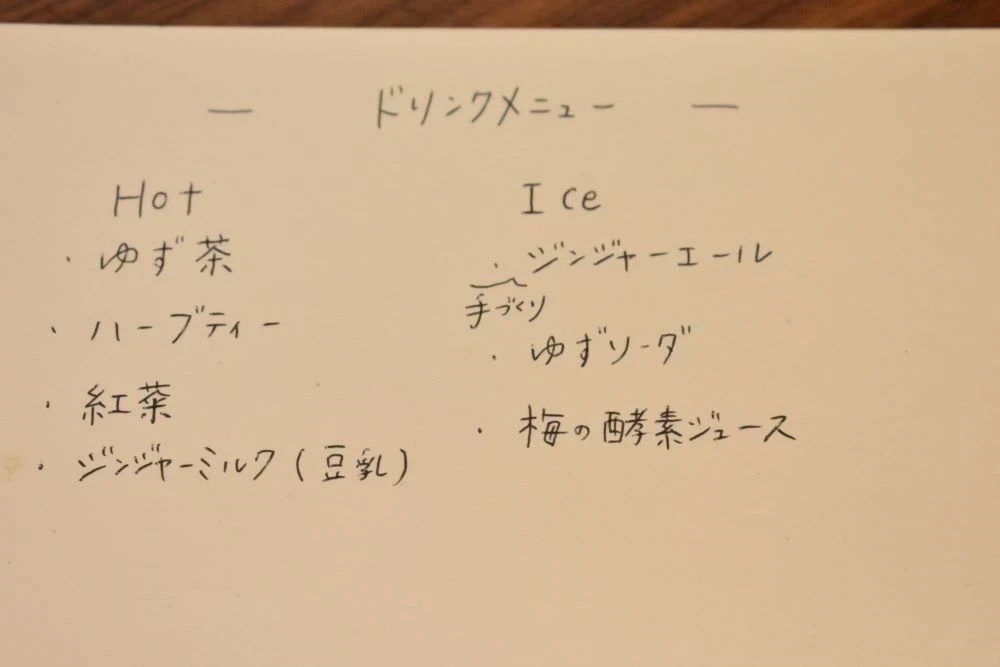 — ドリンクメニュー —
Hot
・ゆず茶
・ハーブティー
・紅茶
・ジンジャーミルク(豆乳)
Ice
・ジンジャーエール
手づくり
・ゆずソーダ
・梅の酵素ジュース